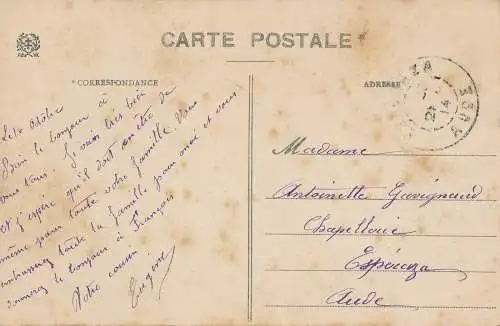 CARTE POSTALE
* CORRESPONDANCE
ADRESSE
bien le bonjour à
vous tous. Je vais très bien
et j'espère qu'il doit en être de
même pour toute votre famille. Vous
embrasserez toute la famille pour moi et vous
donnerez le bonjour à François
Votre cousin
Eugène
Madame
Antoinette Gavignaud
Chapellerie
Espéraza
Aude
ZA
21
14
AUDE